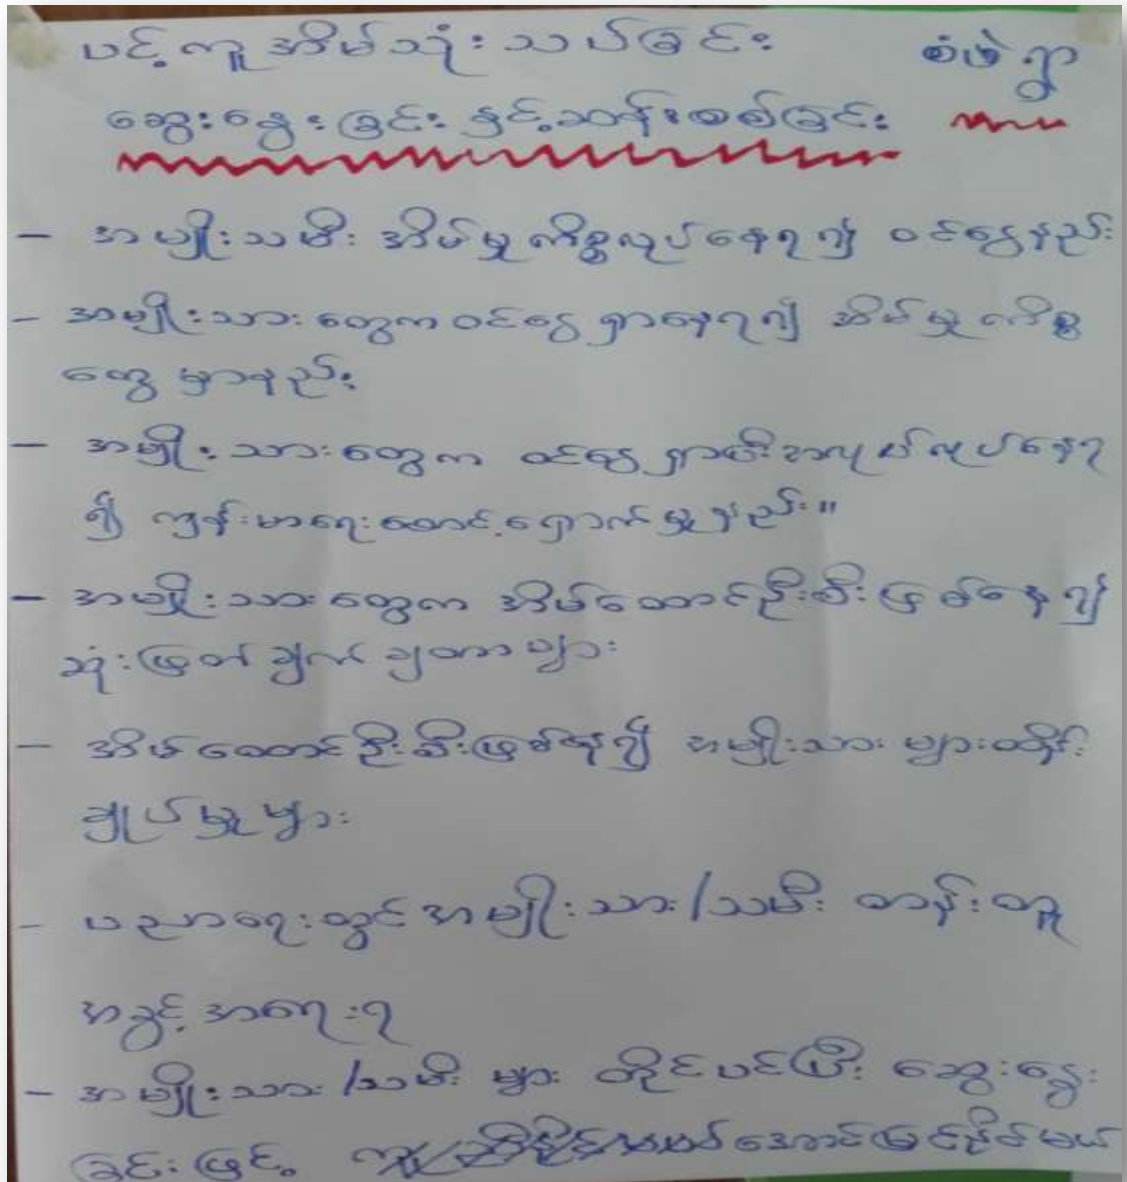 ပင့်ကူအိမ်သုံးသပ်ခြင်း စံဖဲရွာ
ဆွေးနွေးခြင်း နှင့်ဆန်းစစ်ခြင်း
– အမျိုးသမီး အိမ်မှုကိစ္စလုပ်နေရ၍ ဝင်ငွေနည်း
– အမျိုးသားတွေကဝင်ငွေရှာနေရ၍ အိမ်မှုကိစ္စ
တွေမှာနည်း
– အမျိုးသားတွေက ဝင်ငွေရှာဖီးအလုပ်လုပ်နေရ
၍ ကျန်းမာရေးစောင့်ရှောက်မှုနည်း။
– အမျိုးသားတွေက အိမ်ထောင်ဦးစီးဖြစ်နေ၍
ဆုံးဖြတ်ချက်ချတာများ
– အိမ်ထောင်ဦးစီးဖြစ်နေ၍ အမျိုးသားများထိန်း
ချုပ်မှုများ
– ပညာရေးတွင်အမျိုးသား/သမီး တန်းတူ
အခွင့်အရေးရ
– အမျိုးသား/သမီး များ တိုင်ပင်ပြီး ဆွေးနွေး
ခြင်းဖြင့် အောင်မြင်နိုင်မယ်